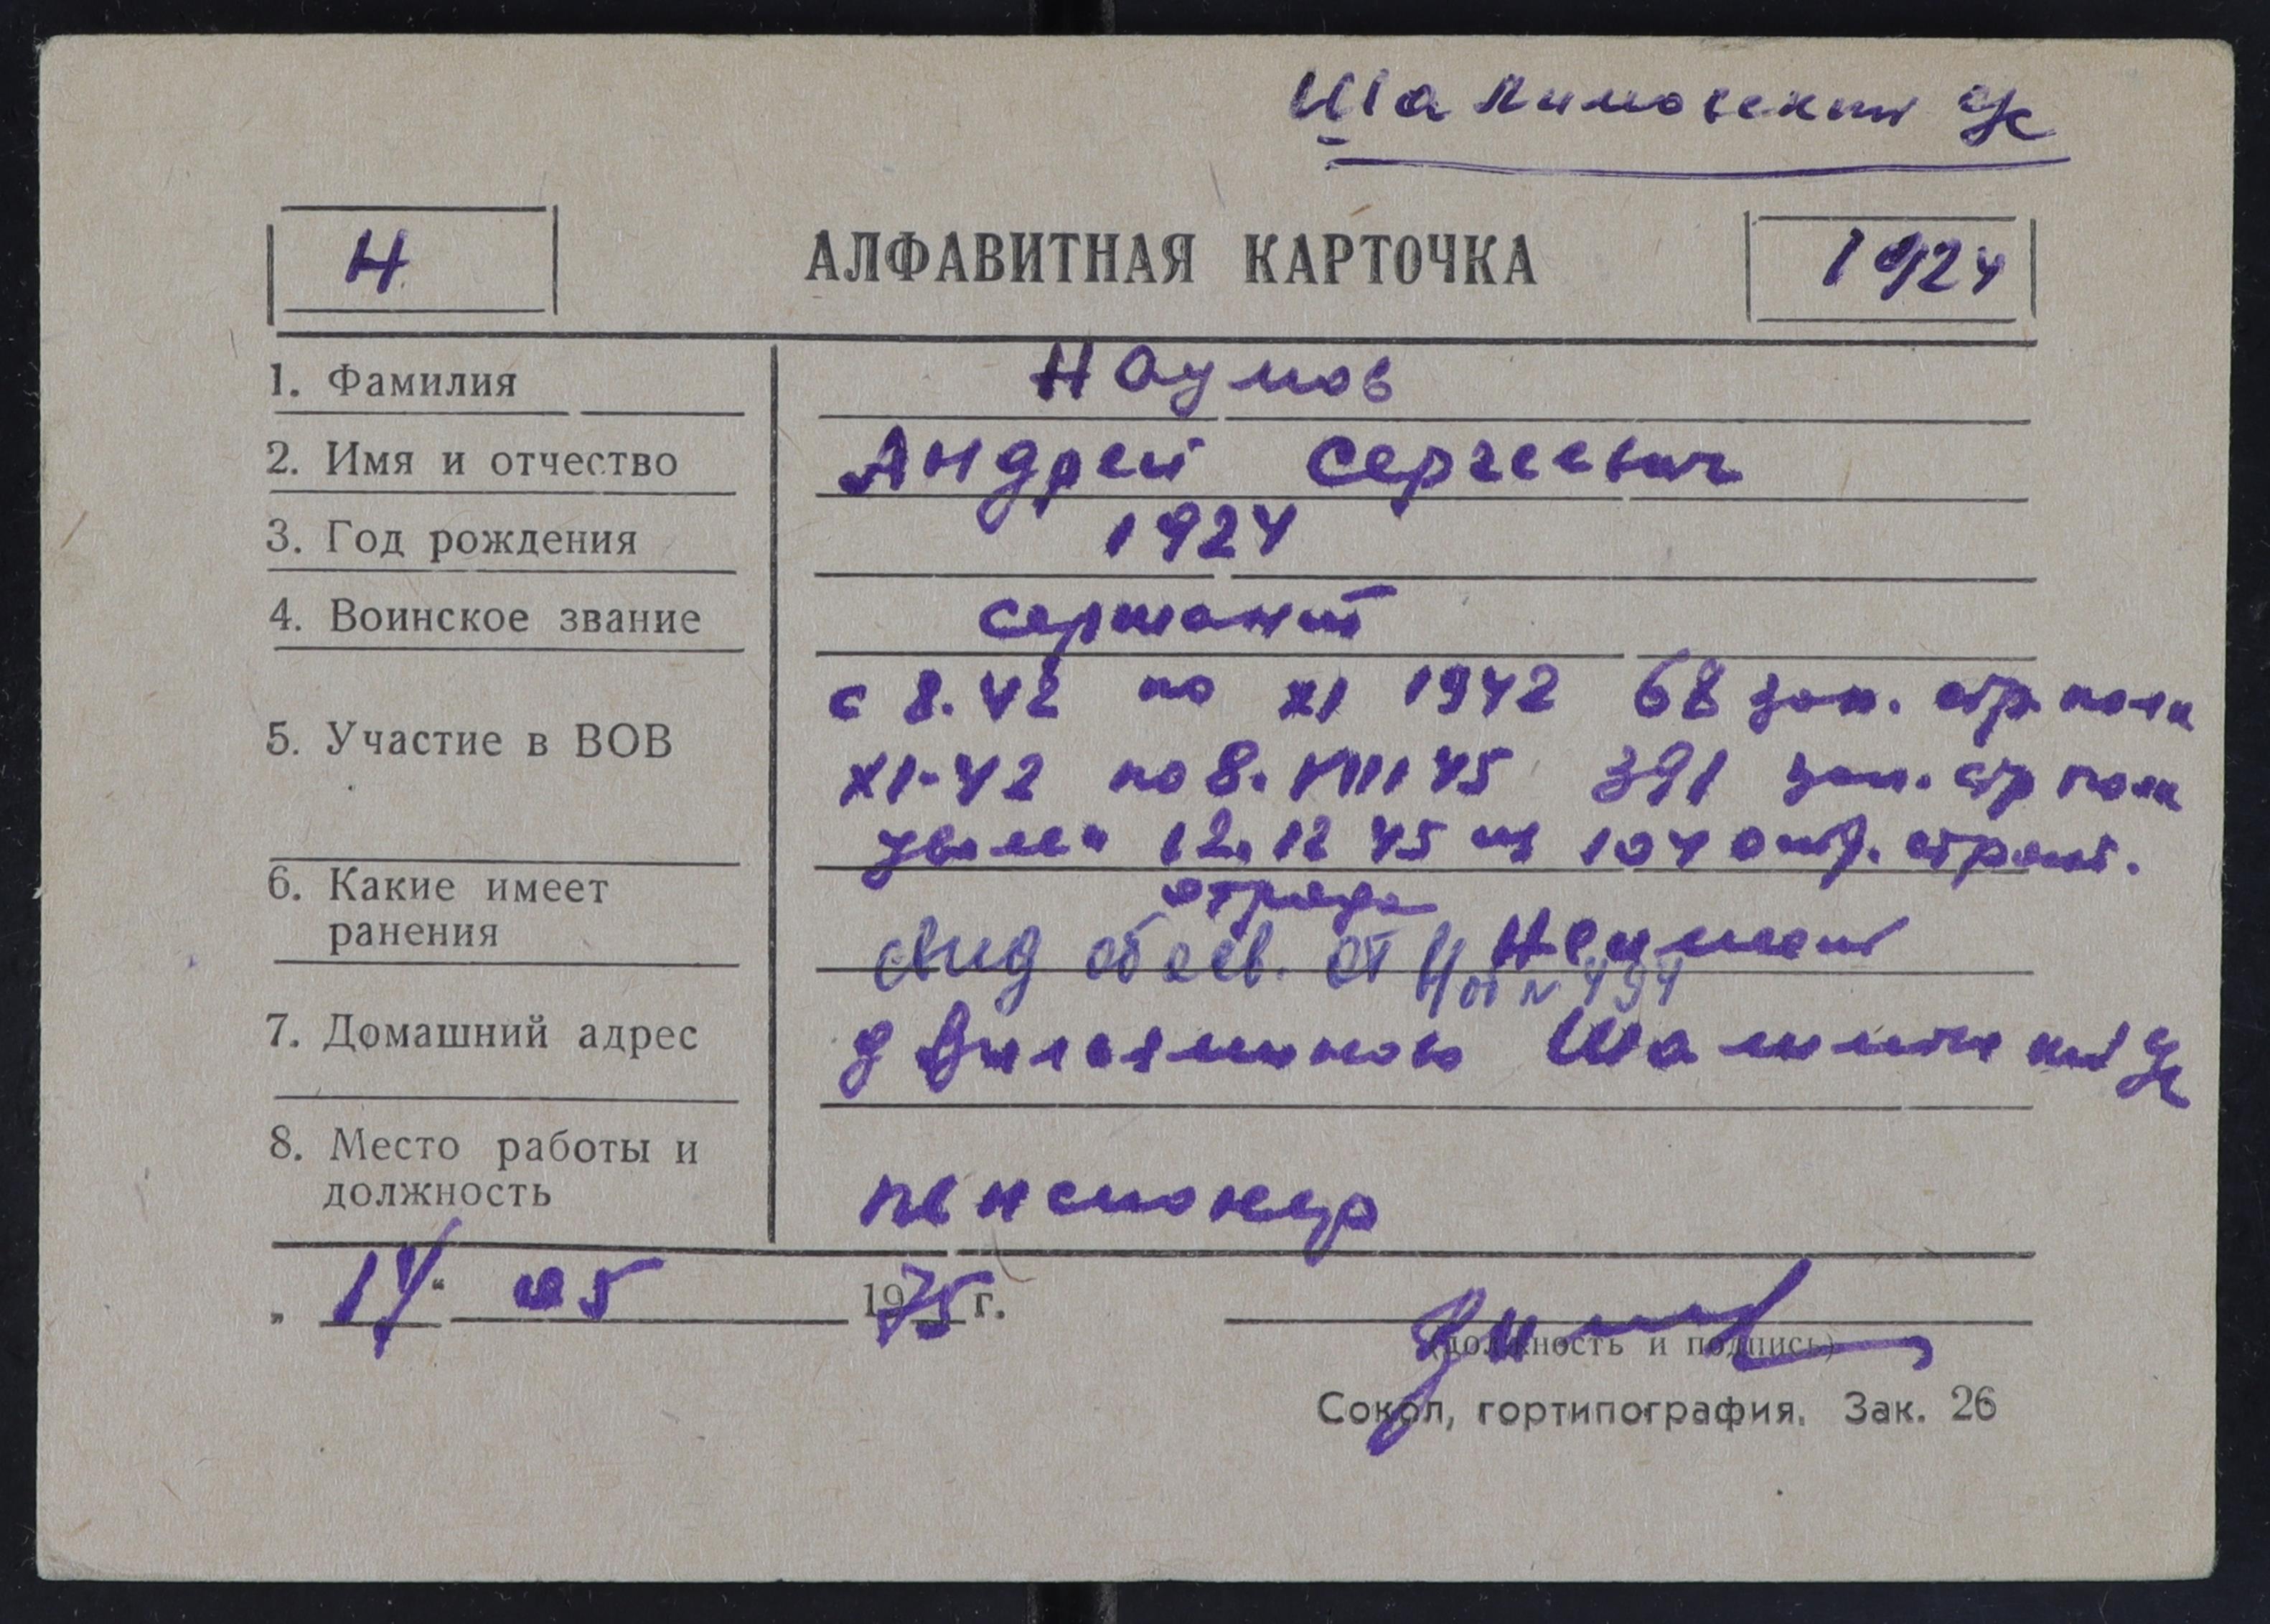 Шалимовский с/с
Н
АЛФАВИТНАЯ КАРТОЧКА
1924
1. Фамилия
Наумов
2. Имя и отчество
Андрей Сергеевич
3. Год рождения
1924
4. Воинское звание
сержант
5. Участие в ВОВ
с 8.42 по XI 1942 68 зап. стр. полк
XI-42 по 8. VIII 45 391 зап. стр полк
уволен 12.12 45 из 104 отд. строит.
отряда
6. Какие имеет
ранения
Не имеет
от №494
7. Домашний адрес
д
8. Место работы и
должность
пенсионер
„ 14 " 05 1975 г.
(должность и подпись)
Сокол, гортипография. Зак. 26